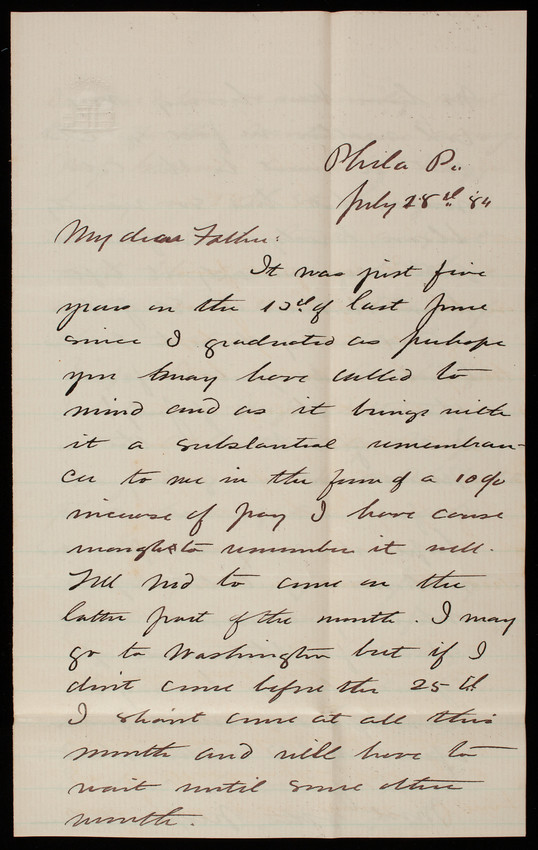 Phila Pa.
July 28th '84
My dear Father:
It was just five
years on the 13th of last June
since I graduated as perhaps
you may have called to
mind and as it brings with
it a substantial remembran-
cer to me in the form of a 10%
increase of pay I have cause
enough to remember it well.
Tell Ned to come on the
latter part of the month. I may
go to Washington but if I
don't come before the 25th
I shan't come at all this
month and will have to
wait until some other
month.